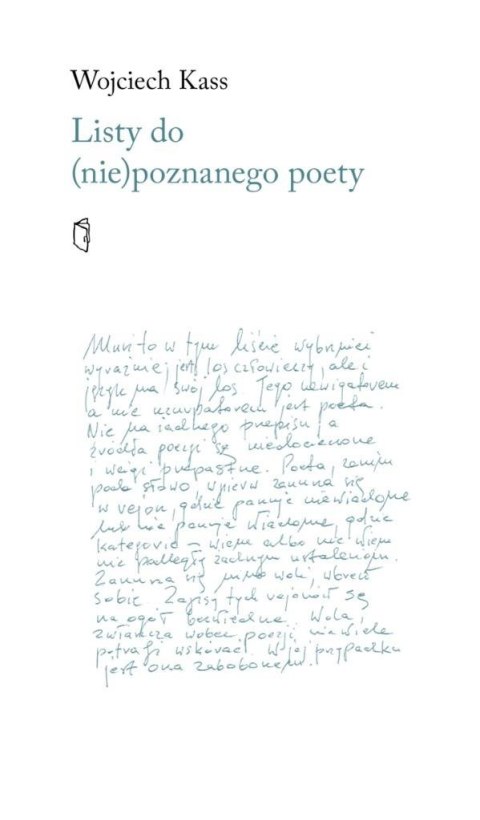 Wojciech Kass
Listy do
(nie)poznanego poety
Musi to w tym liście wybrzmieć
wyraźniej jest los człowieczy, ale i
język ma swój los. Jego nawigatorem
a nie uzurpatorem jest poeta.
Nie ma żadnego przepisu a
źródła poezji są niedocieczone
i wciąż przepastne. Poeta, zanim
pada słowo, wpierw zanurza się
w rejon, gdzie panuje niewiadome
lub nie panuje wiadome, gdzie
kategorie – wiem albo nie wiem
nie podlegają żadnym ustaleniom.
Zanurza się mimo woli, wbrew
sobie. Zapisy tych rejonów są
na ogół bezwiedne. Wola,
zwłaszcza wobec poezji niewiele
potrafi wskórać. W jej przypadku
jest ona zabobonem.